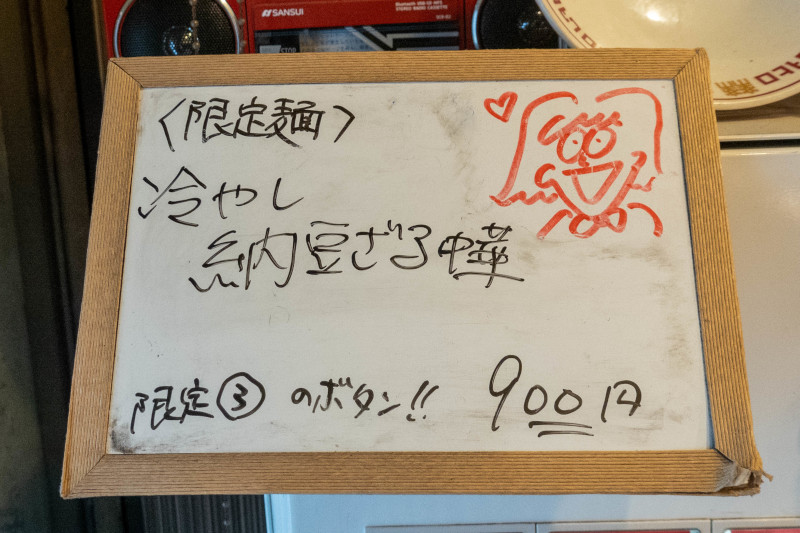 SANSUI
〈限定麺〉
冷やし
納豆ざる中華
限定③のボタン!! 900円